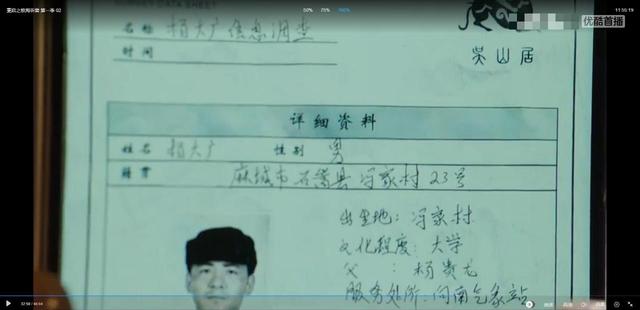 重启之极海听雷 第一季 02
50% 75% 100%
11:55:19
优酷首播
名称 杨大广信息调查
时间
吴山居
详细资料
姓名 杨大广 性别 男
籍贯 麻城市石蒿县冯家村23号
出生地：冯家村
文化程度：大学
父：杨贵龙
服务处所：河南气象站
倍速 高清